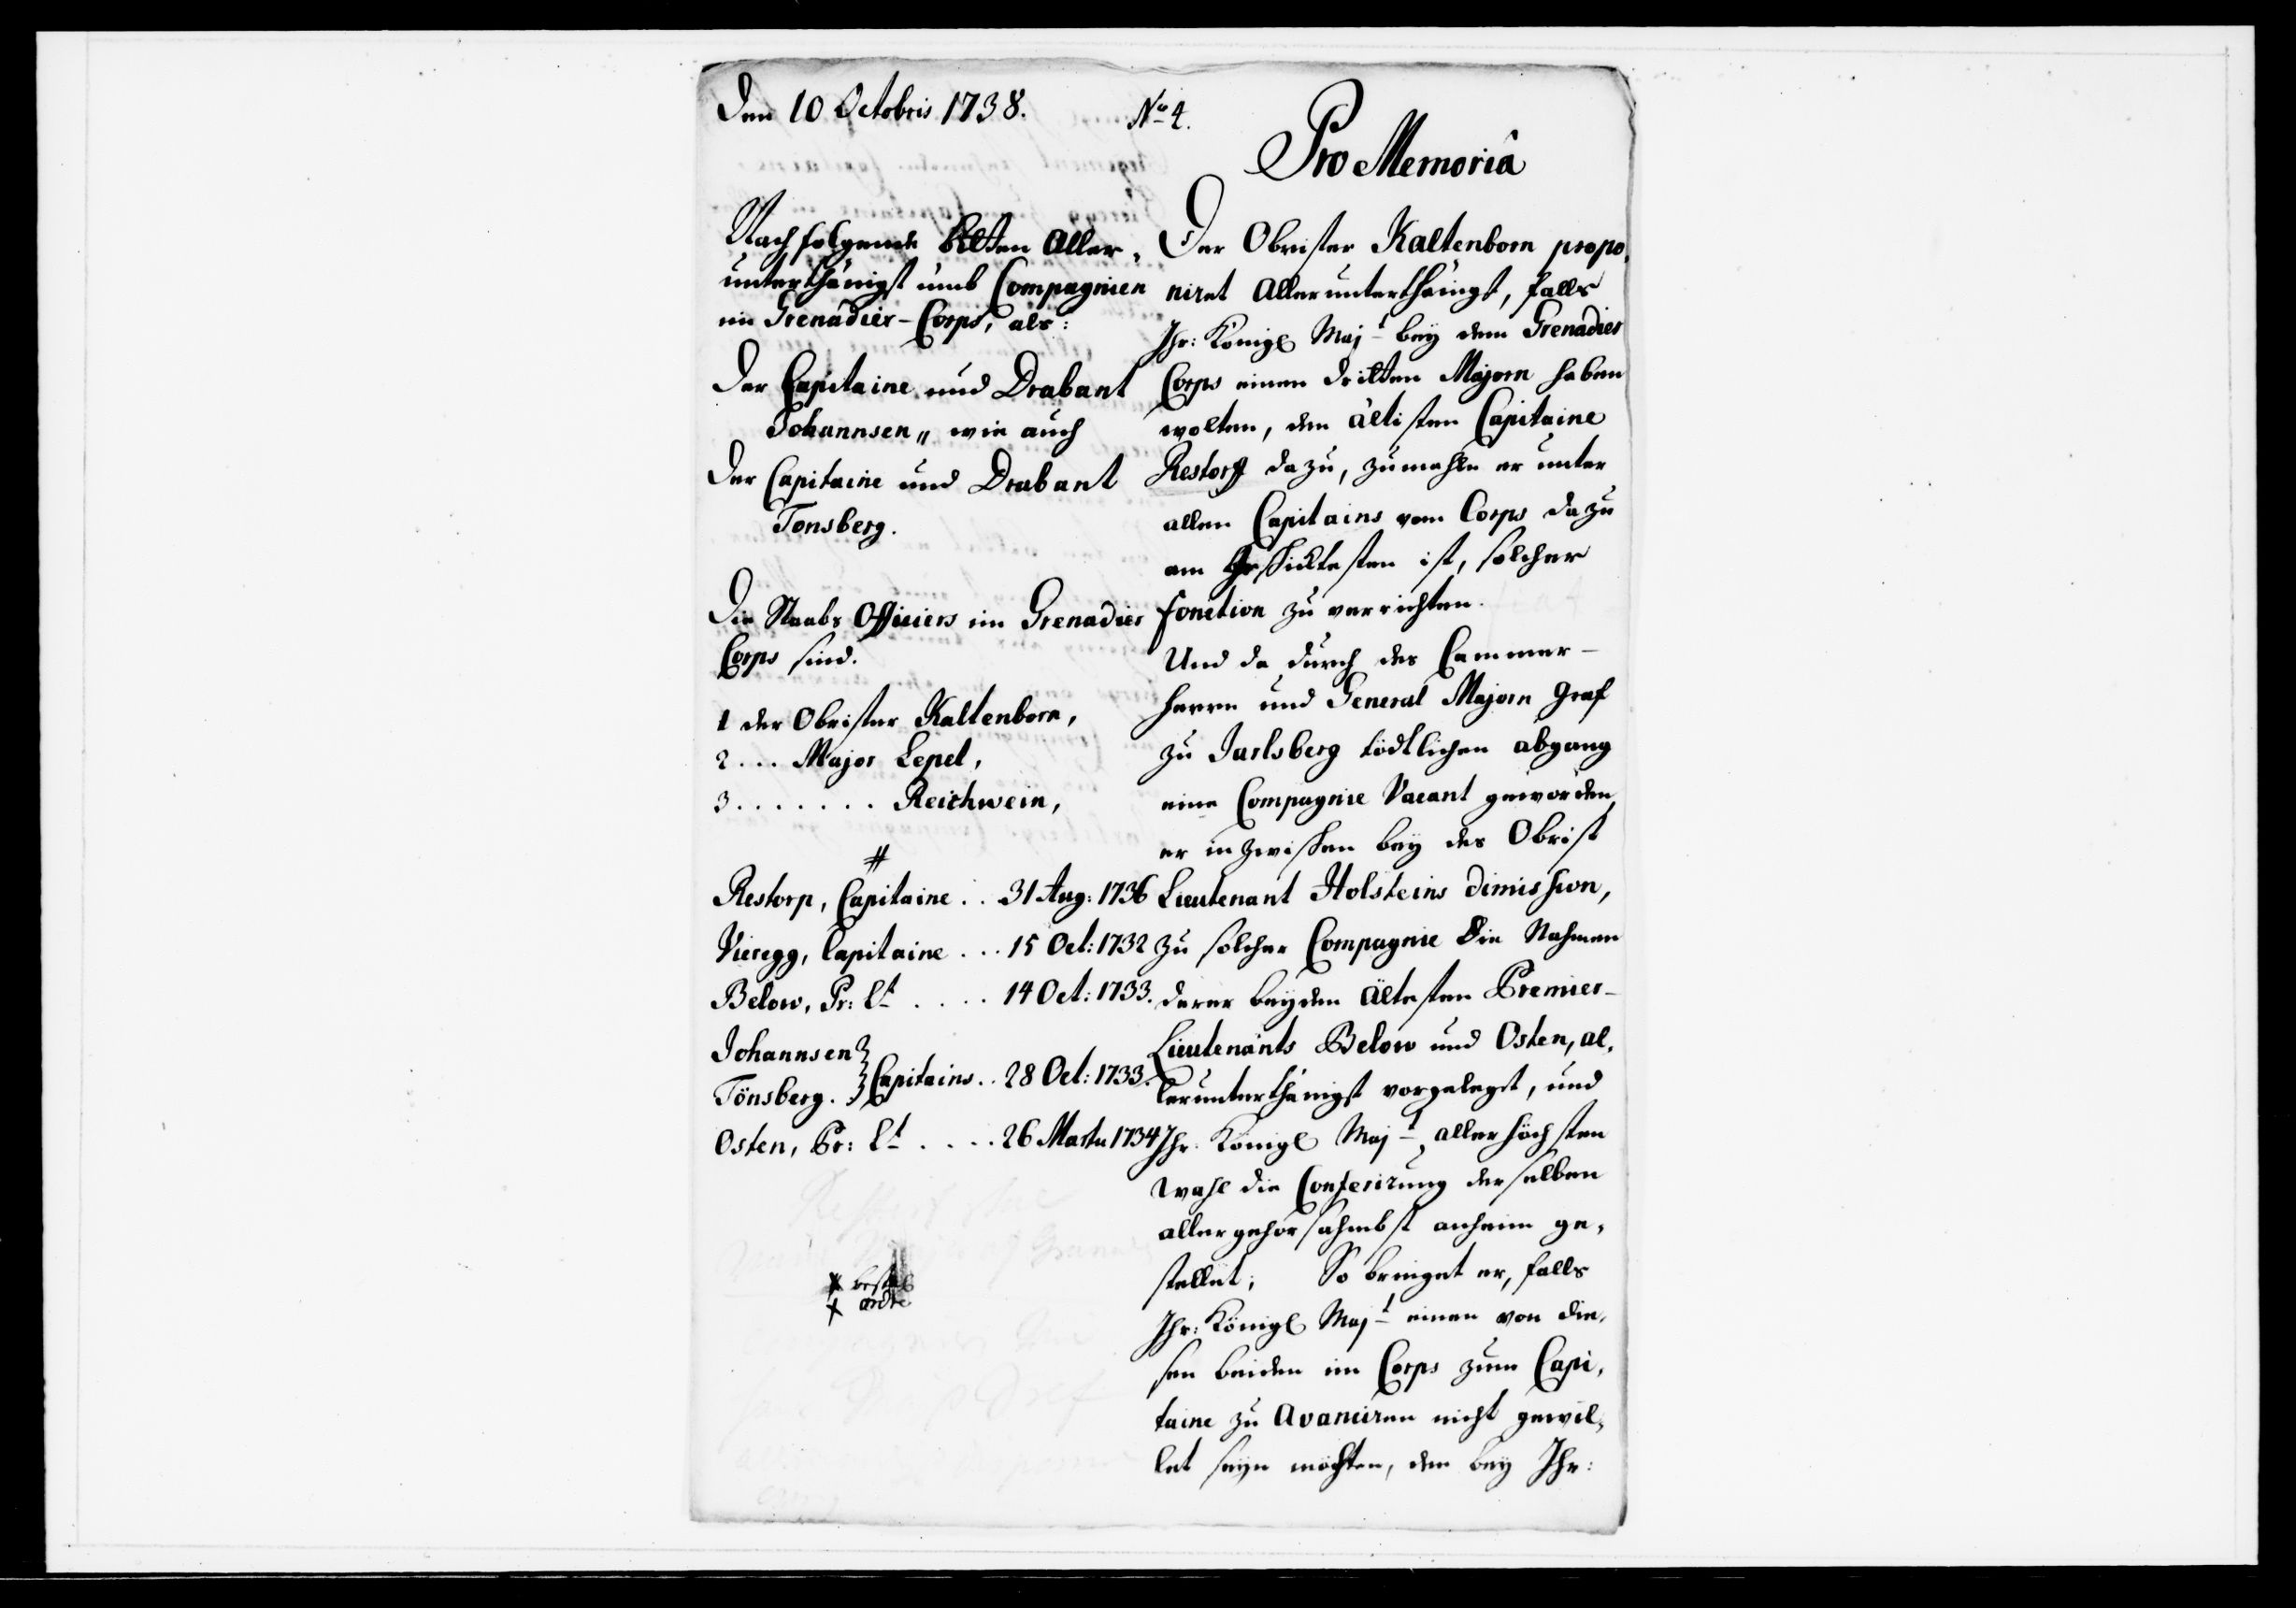 Den 10 Octobris 1738.
No 4.
Pro Memoriâ
Nachfolgende bitten Aller-
unterthänigst umb Compagnien
im Grenadier-Corps, als:
Der Capitaine und Drabant
Johannsen,, wie auch
Der Capitaine und Drabant
Tonsberg.
Die Staabs Officiers im Grenadier
Corps sind.
1 der Obrister Kaltenborn,
2 ... Major Lepel,
3 ....... Reichwein,
#
Restorp, Capitaine .. 31 Aug: 1736
Vieregg, Capitaine ... 15 Oct: 1732
Below, Pr: Lt .... 14 Oct: 1733.
Johannsen
Tönsberg. } Capitains .. 28 Oct: 1733.
Osten, Pr: Lt .... 26 Martii 1734
x
x ordre
Der Obrister Kaltenborn propo-
niret Allerunterthänigst, falls
Ihr: Königl Majt bey dem Grenadier
Corps einen dritten Majorn haben
wolten, den ältisten Capitaine
Restorff dazu, zumahln er unter
allen Capitains vom Corps dazu
am Geschicktesten ist, solcher
fonction zu verrichten.
Und da durch des Cammer-
herrn und General Majorn Graf
zu Jarlsberg tödtlichen abgang
eine Compagnie Vacant geworden,
er inzwischen bey des Obrist
Lieutenant Holsteins dimission,
zu solcher Compagnie die Nahmen
derer beyden ältesten Premier-
Lieutenants Below und Osten, al-
lerunterthänigst vorgelegt, und
Ihr: Königl Majt allerhöchsten
Wahl die Conferirung derselben
allergehorsahmbst anheim ge-
stellet; So bringet er, falls
Ihr: Königl Majt einen von die-
sen beiden im Corps zum Capi-
taine zu Avanciren nicht gewil-
let seyn möchten, den bey Ihr: